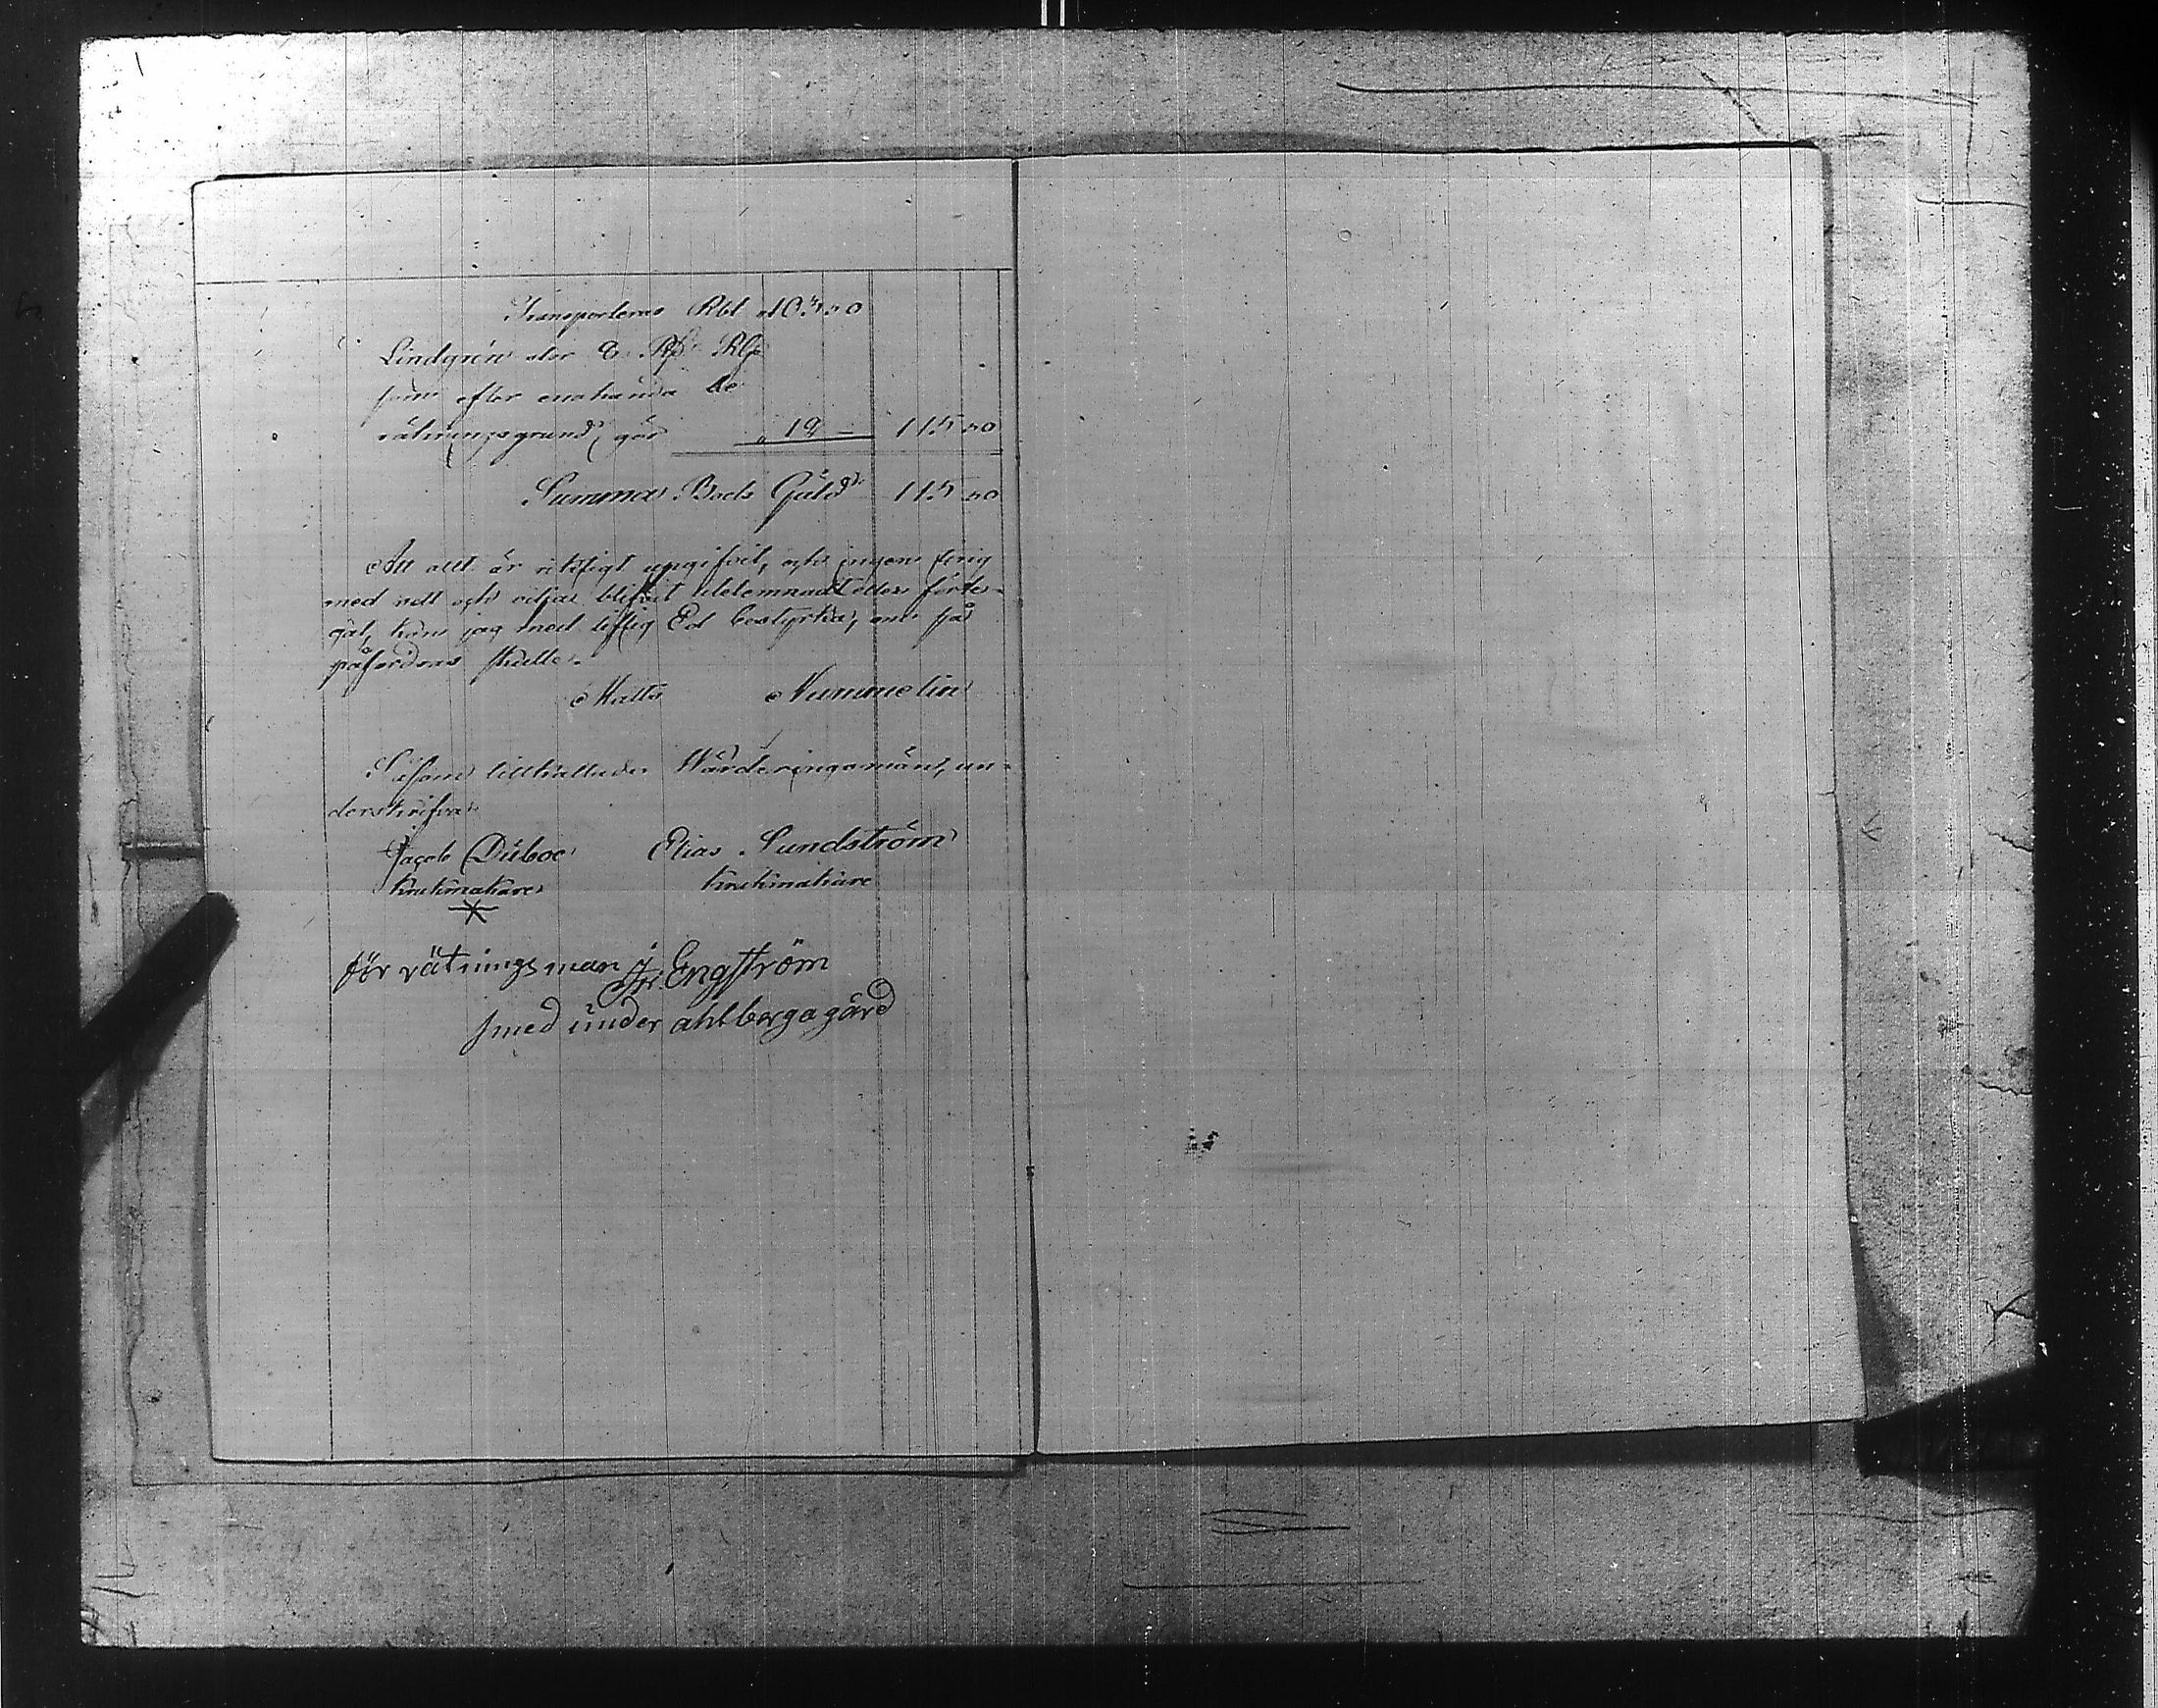 Transporteras Rbl 103 50
Lindgrén eller D. Rß Rg
som efter enahanda be
räkningsgrund, gör 12 — 115 50
Summa Bods Gäld 115 50
Att allt är riktigt upgifvit, och ingen ting
med vett och vilja blifvit utelemnadt eller förte-
gat, kan jag med liflig Ed bestyrka, om så
påfordras skulle.
Matts Nummelin
Såsom tillkallade Wärderingsmän, un-
derskrifva
Jacob Duboe Elias Sundström
Krukmakare Krukmakare
för rätningsman Engström
smed under ahlbergagård